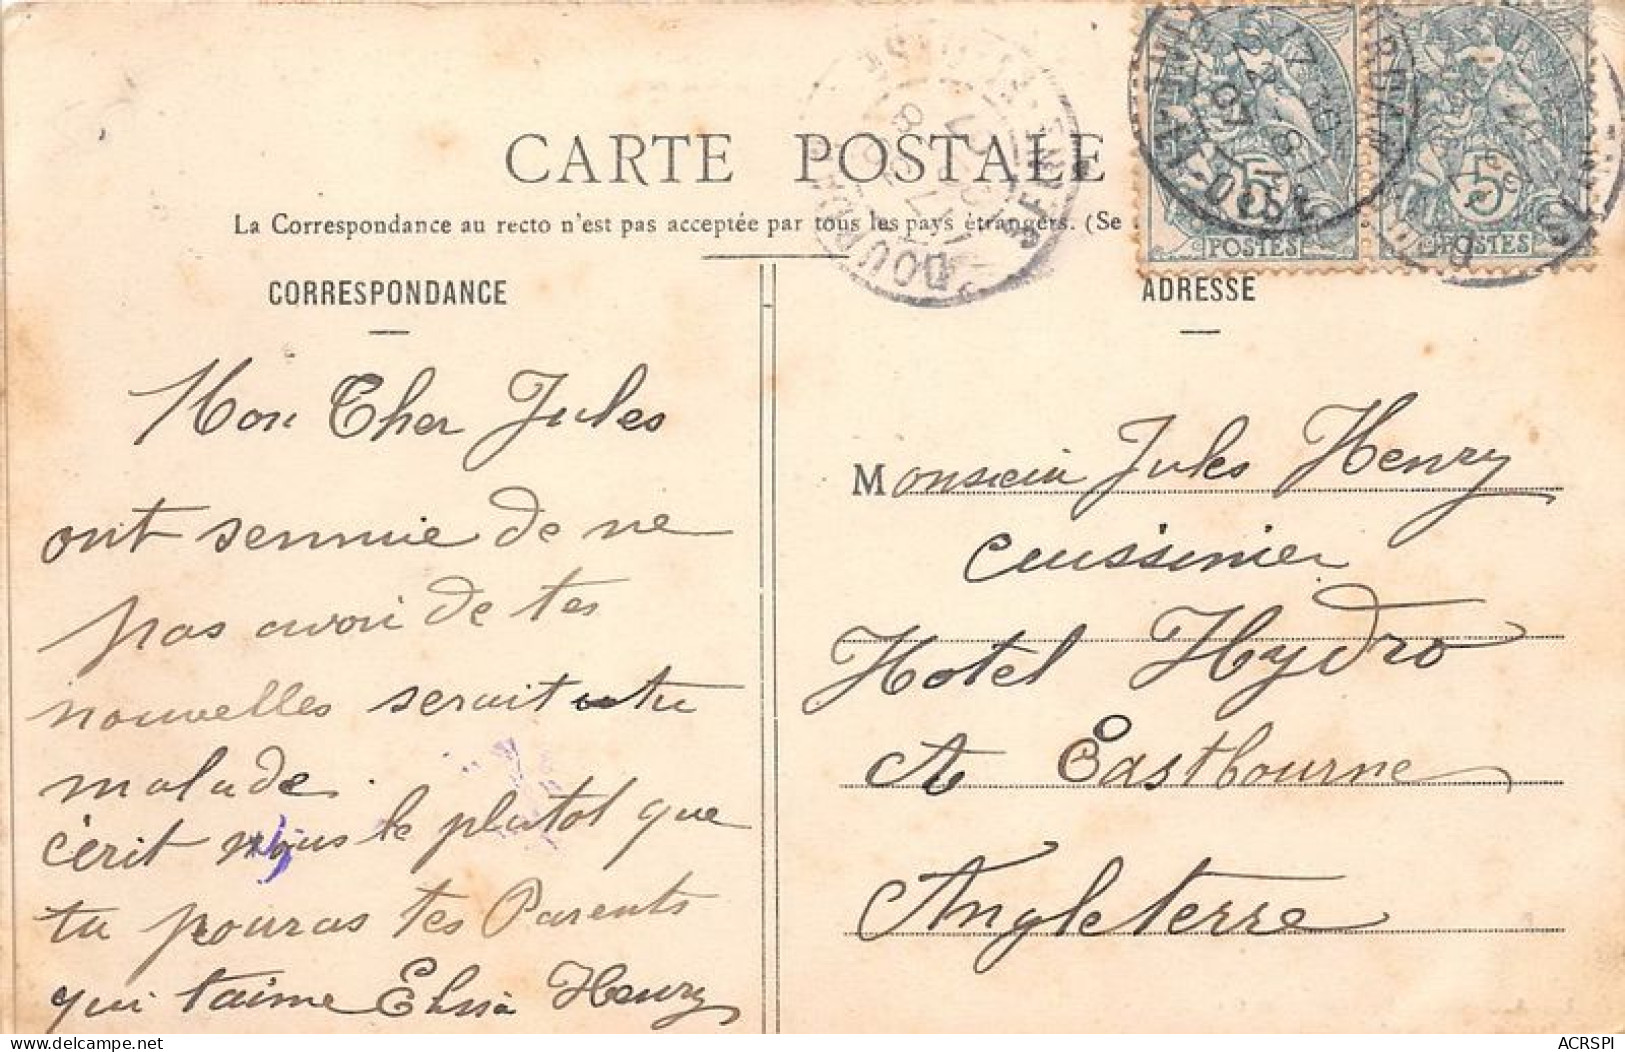 CARTE POSTALE
La Correspondance au recto n'est pas acceptée par tous les pays étrangers. (Se
CORRESPONDANCE
Mon Cher Jules
ont sennuie de ne
pas avoir de tes
nouvelles serait tu
malade.
écrit nous le plutot que
tu pouras tes Parents
qui taime Henry
ADRESSE
Monsieur Jules Henry
Cuissinier
Hotel Hydro
A Eastbourne
Angleterre
5
POSTES
5
POSTES
OISE
ACRSPI